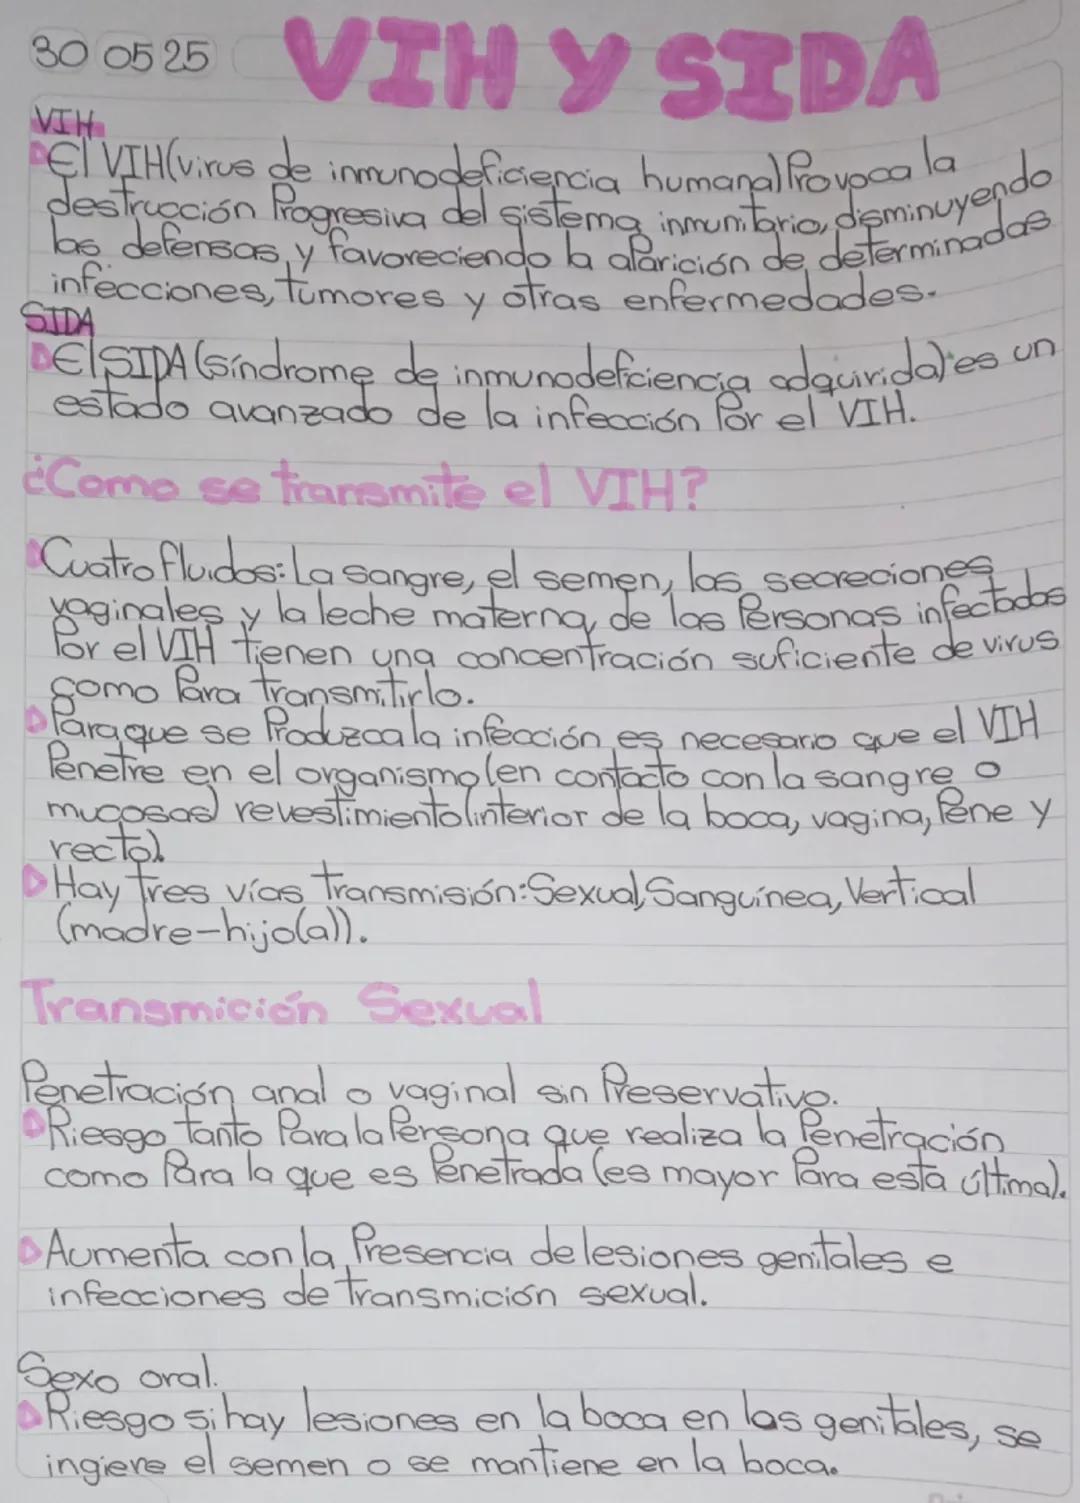 30 05 25 VIH Y SIDA
VIH
El VIH(virus de inmunodeficiencia humana) Provoca la
destrucción Progresiva del sistema inmunitario, disminuyendo
las defensas y favoreciendo la aparición de determinadas
infecciones, tumores y otras enfermedades.
SIDA
El SIDA (síndrome de inmunodeficiencia adquirida) es un
estado avanzado de la infección Por el VIH.
¿Como se transmite el VIH?
Cuatro fluidos: La sangre, el semen, las secreciones
vaginales y la leche materna, de las Personas infectadas
Por el VIH tienen una concentración suficiente de virus
como Para transmitirlo.
Para que se Produzca la infección es necesario que el VIH
Penetre en el organismo (en contacto con la sangre o
mucosas) revestimiento (interior de la boca, vagina, Pene y
recto).
Hay tres vías transmisión: Sexual, Sanguínea, Vertical
(madre-hijo(a)).
Transmición Sexual
Penetración anal o vaginal sin Preservativo.
Riesgo tanto Para la Persona que realiza la Penetración
como Para la que es Penetrada (es mayor Para esta última).
Aumenta con la Presencia de lesiones genitales e
infecciones de transmición sexual.
Sexo oral.
Riesgo si hay lesiones en la boca en las genitales, se
ingiere el semen o se mantiene en la boca.